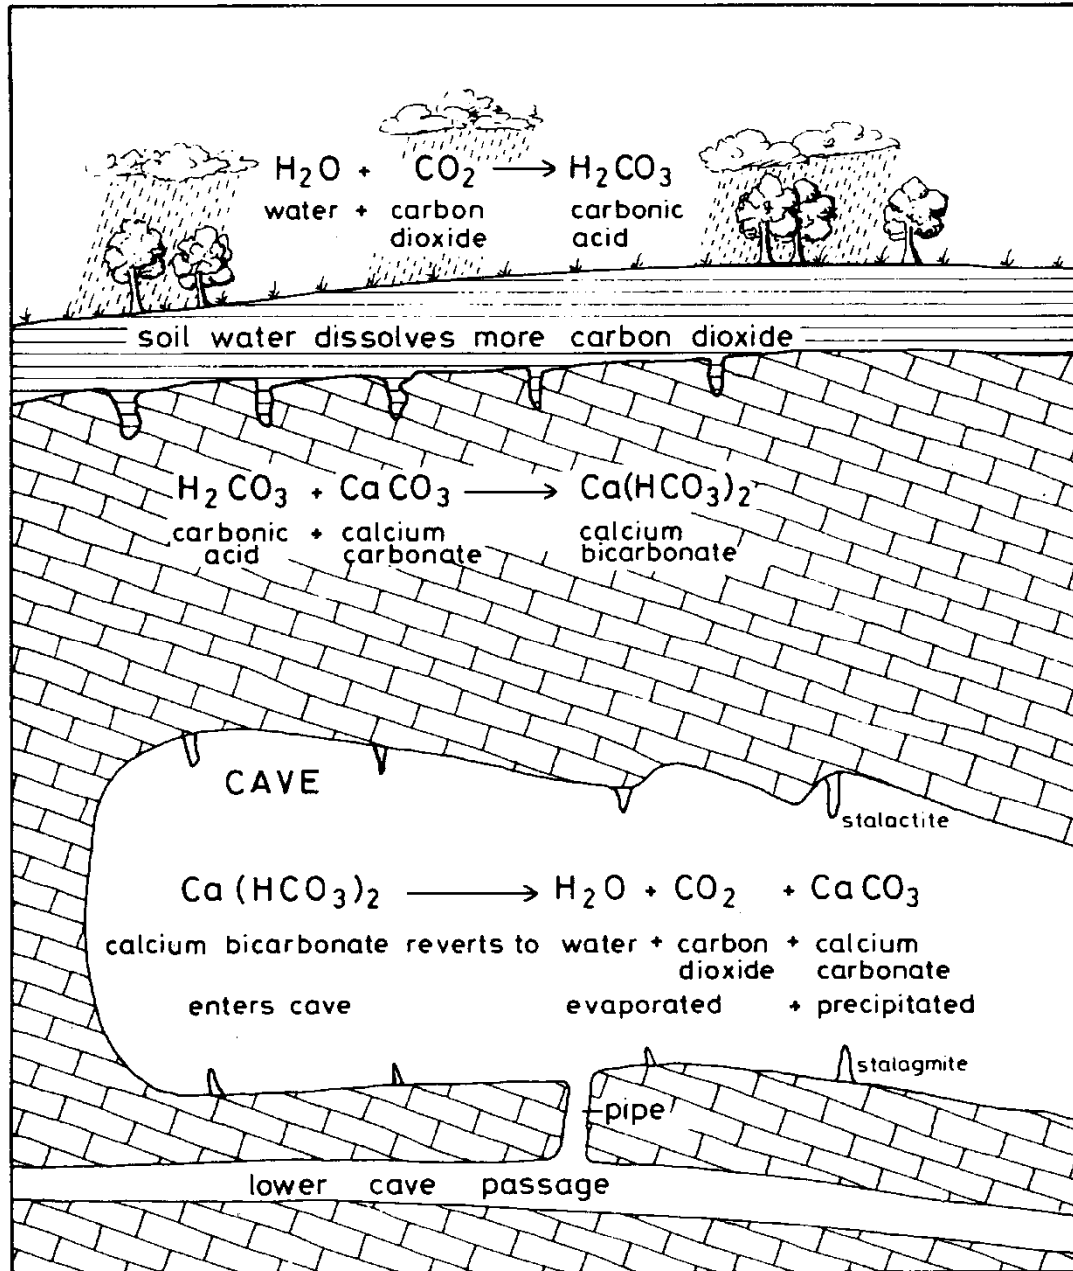 H₂O + CO₂ → H₂CO₃
water + carbon dioxide carbonic acid
soil water dissolves more carbon dioxide
H₂CO₃ + CaCO₃ → Ca(HCO₃)₂
carbonic acid + calcium carbonate calcium bicarbonate
CAVE
stalactite
Ca(HCO₃)₂ → H₂O + CO₂ + CaCO₃
calcium bicarbonate reverts to water + carbon dioxide + calcium carbonate
enters cave evaporated + precipitated
stalagmite
pipe
lower cave passage